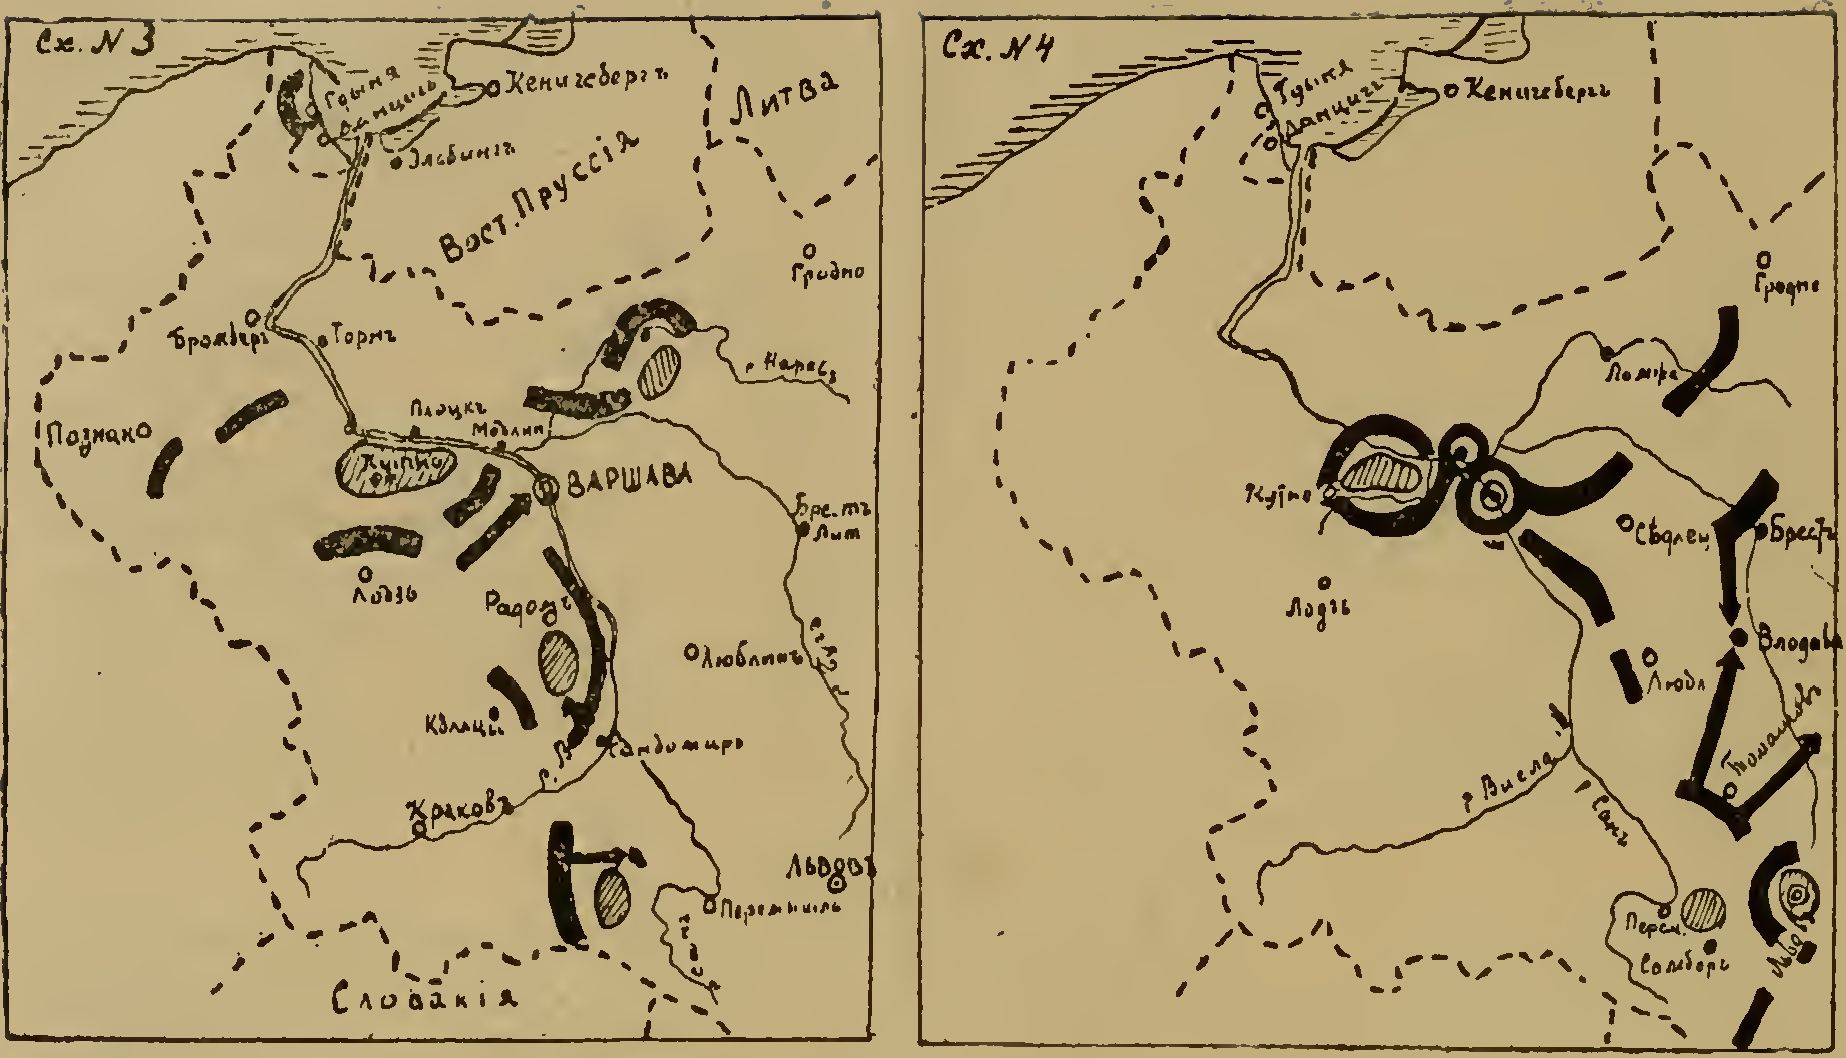 Сх. N 3
Гдыня
Данцигъ
Кенигсбергъ
Литва
Эльбингъ
Вост. Пруссія
Гродно
Бромбергъ
Торнъ
р. Наревъ
Плоцкъ
Модлин
Кутно
ВАРШАВА
Лодзь
Радомъ
Люблинъ
Кѣльцы
Сандомиръ
Краковъ
Львовъ
Перемышль
Словакія
Сх. N 4
Гдыня
Данцигъ
Кенигсбергъ
Гродно
Ломжа
Кутно
Сѣдлец
Брестъ
Лодзь
Влодава
Любл
Томашовъ
р Висла
р Санъ
Перем.
Самборъ
Львов